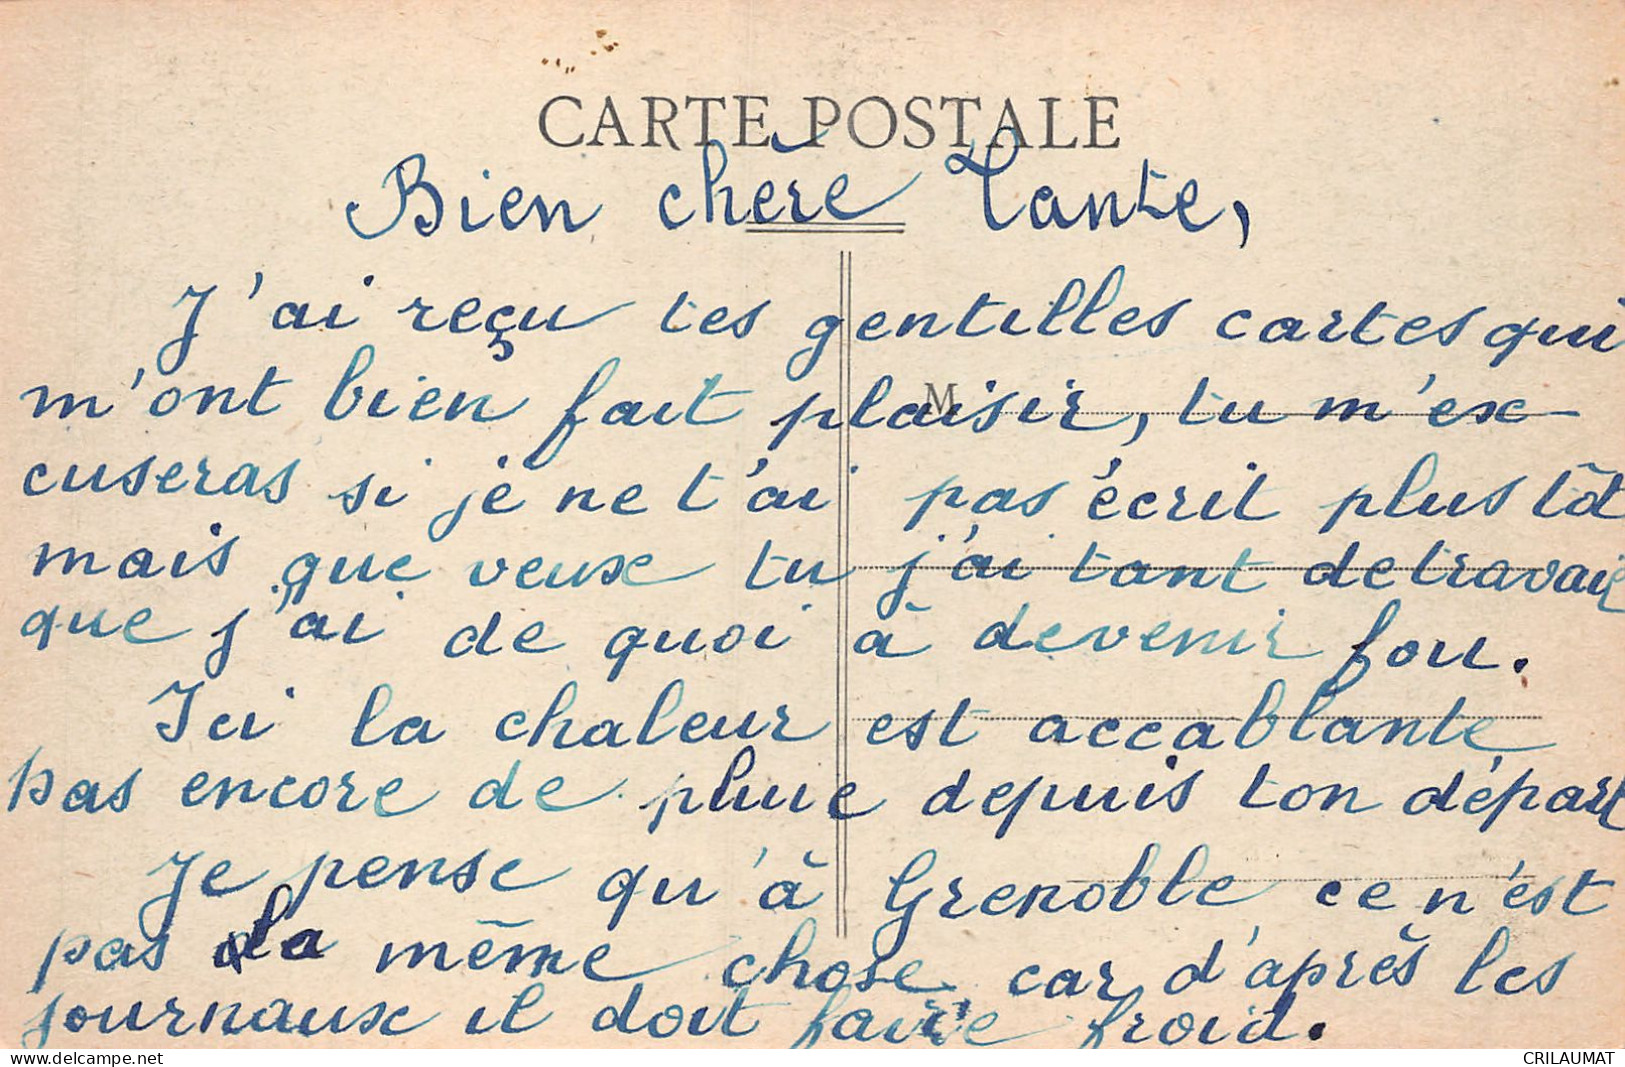 CARTE POSTALE
Bien chère Tante,
J'ai reçu tes gentilles cartes qui
M
m'ont bien fait plaisir, tu m'ex-
cuseras si je ne t'ai pas écrit plus tôt
mais que veux tu j'ai tant de travail
que j'ai de quoi à devenir fou.
Ici la chaleur est accablante
pas encore de pluie depuis ton départ
Je pense qu'à Grenoble ce n'est
pas la même chose car d'après les
journaux il doit faire froid.
www.delcampe.net
CRILAUMAT